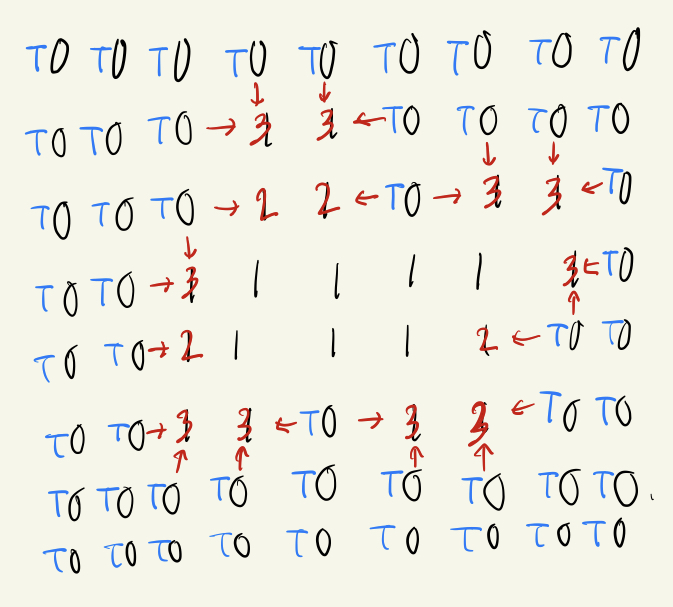 T0 T0 T0 T0 T0 T0 T0 T0 T0
T0 T0 T0 → 3 3 ← T0 T0 T0 T0
T0 T0 T0 → 2 2 ← T0 → 3 3 ← T0
T0 T0 → 3 1 1 1 1 3 ← T0
T0 T0 → 2 1 1 1 2 ← T0 T0
T0 T0 → 3 3 ← T0 → 3 3 ← T0 T0
T0 T0 T0 T0 T0 T0 T0 T0 T0
T0 T0 T0 T0 T0 T0 T0 T0 T0